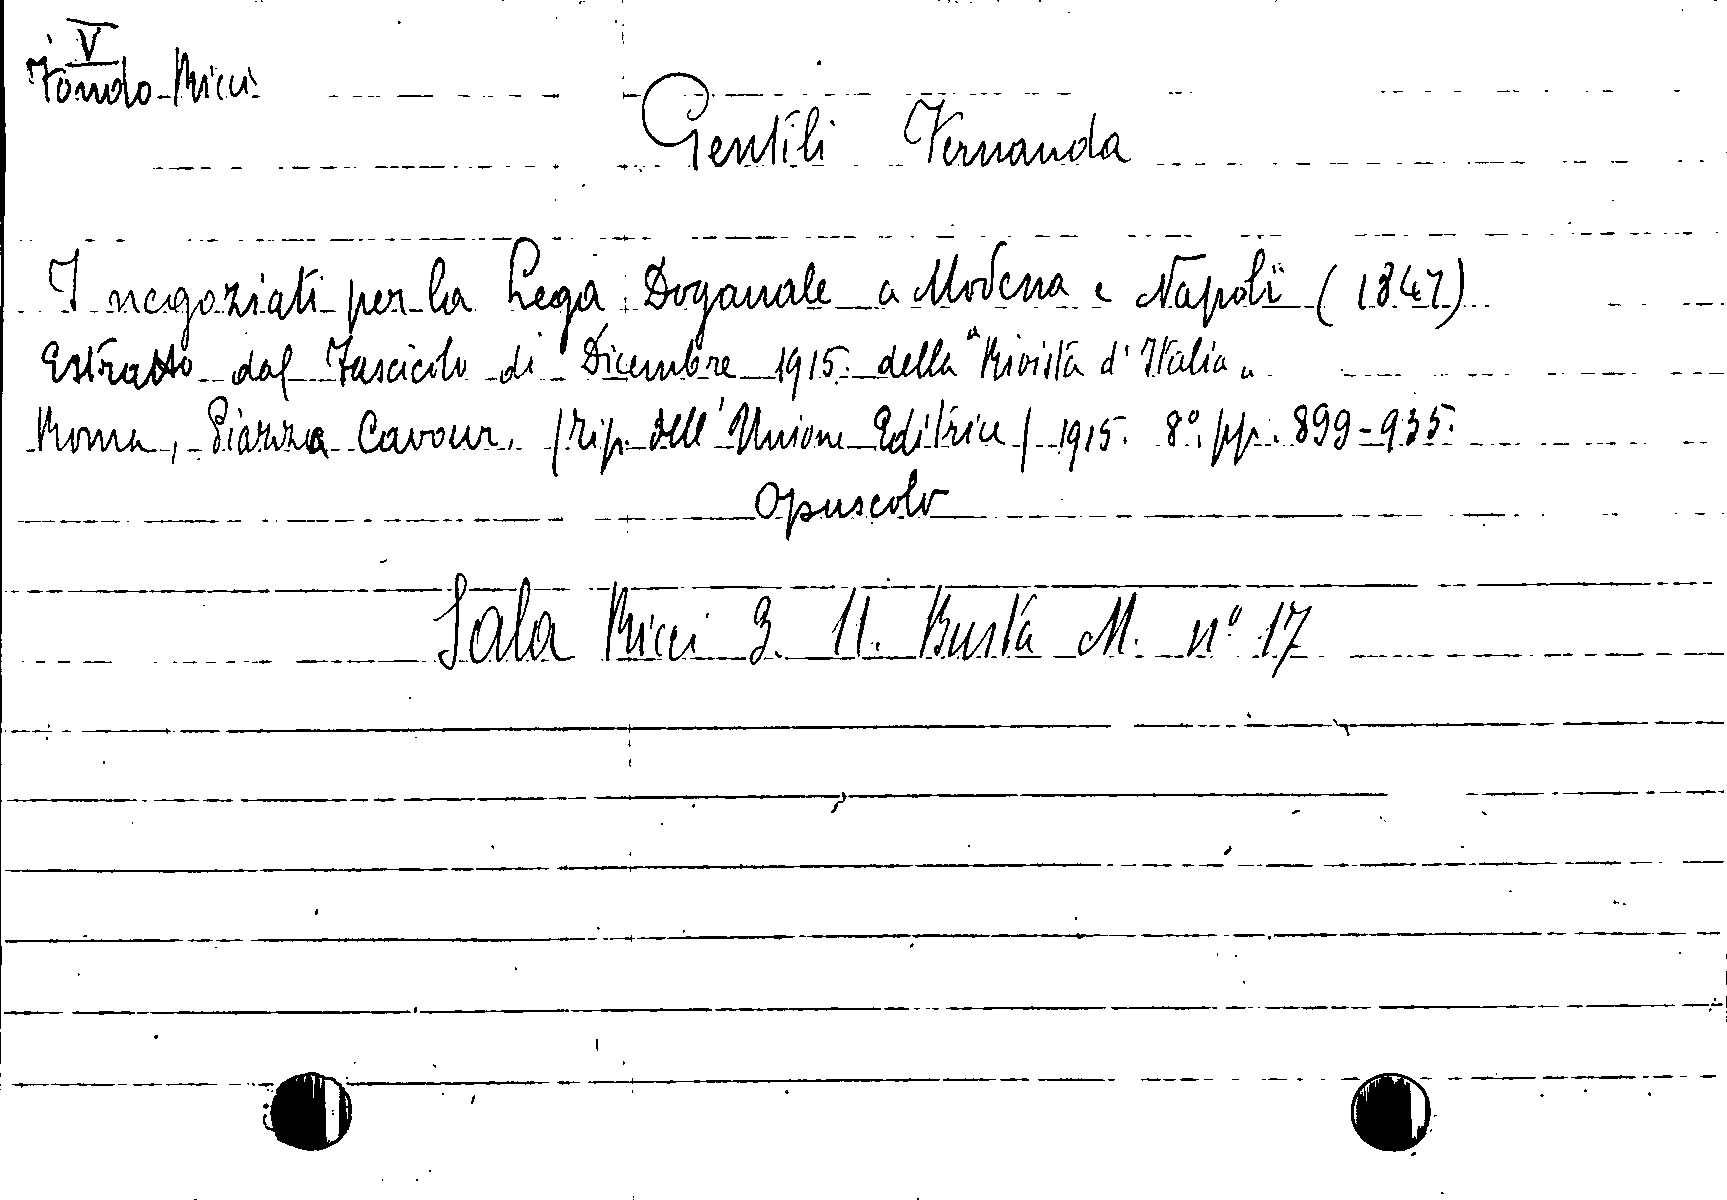 V
Fondo Ricci
Gentili Fernanda
I negoziati per la Lega Doganale a Modena e Napoli (1847)
Estratto dal Fascicolo di Dicembre 1915. della "Rivista d'Italia"
Roma, Piazza Cavour. (Tip. dell'Unione Editrice) 1915. 8°. pp. 899-935.
Opuscolo
Sala Ricci 3. 11. Busta M. n° 17